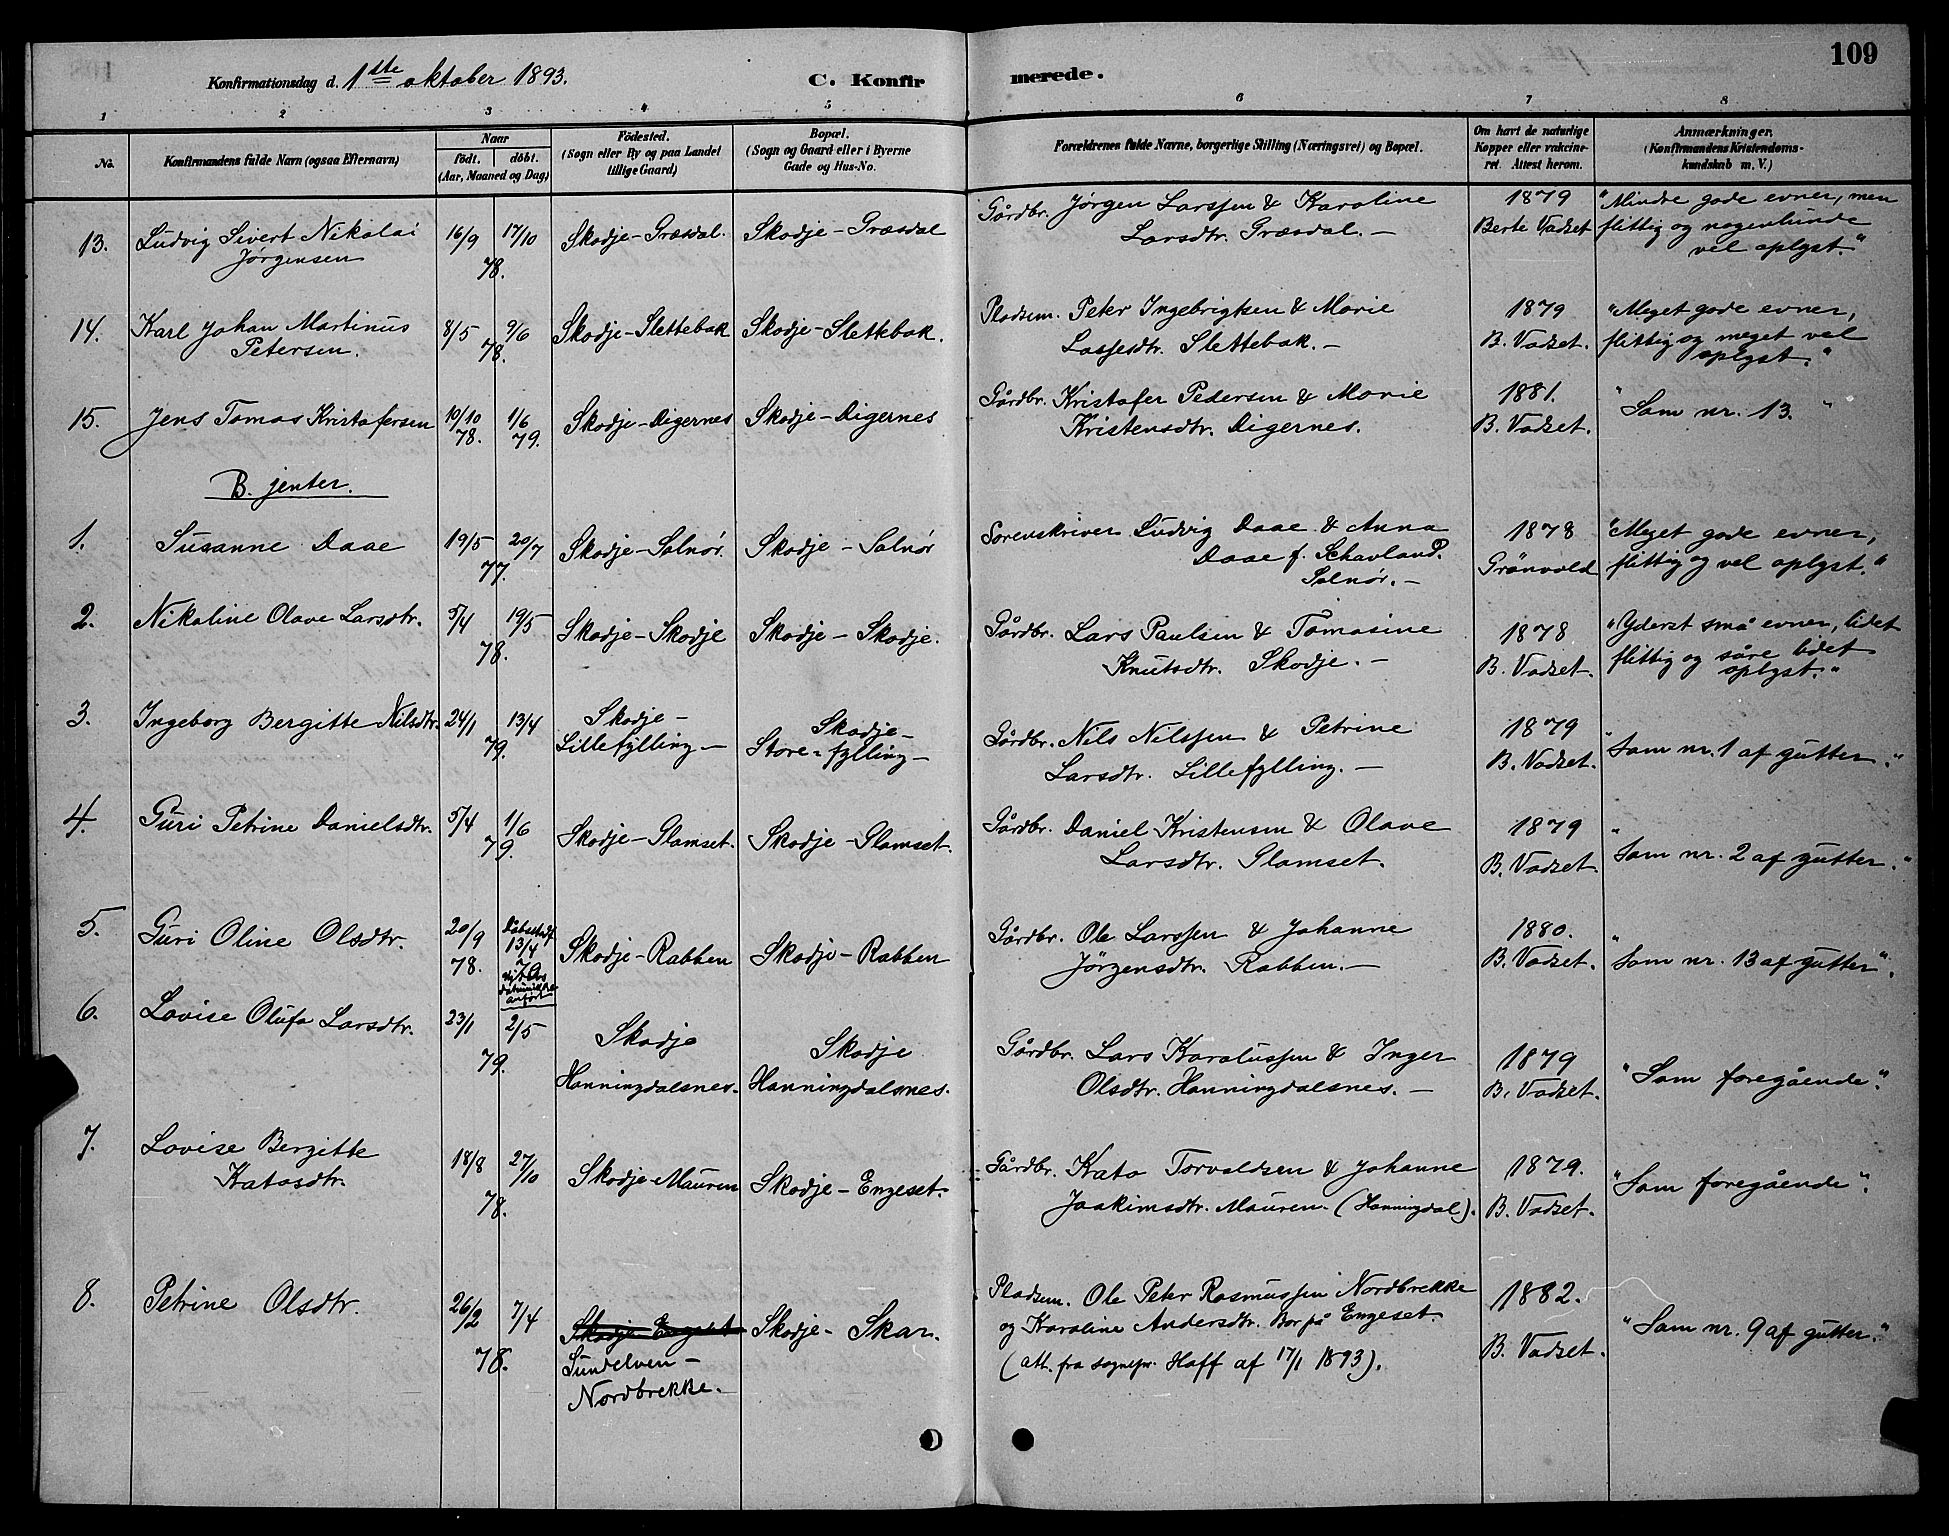 109
Konfirmationsdag d. 1ste oktober 1893.
C. Konfir
merede.
1 2 3 4 5 6 7 8
No.
Konfirmandens fulde Navn (ogsaa Efternavn)
Naar
födt. döbt.
(Aar, Maaned og Dag)
Födested.
(Sogn eller By og paa Landet
tillige Gaard)
Bopæl.
(Sogn og Gaard eller i Byerne
Gade og Hus-No.
Forældrenes fulde Navne, borgerlige Stilling (Næringsvei) og Bopæl.
Om havt de naturlige
Kopper eller vakcine-
ret. Attest herom.
Anmærkninger.
(Konfirmandens Kristendoms-
kundskab m. V.)
13. Ludvig Sivert Nikolai
Jørgensen
16/9 17/10
78.
Skodje-Græsdal.
Skodje-Græsdal
Gårdbr. Jørgen Larssen & Karoline
Larsdtr. Græsdal. –
1879
Berte Vadset
"Mindre gode evner, men
flittig og nogenlunde
vel oplyst."
14. Karl Johan Martinus
Petersen.
8/5 9/6
78.
Skodje-Slettebak
Skodje-Slettebak.
Pladsm. Peter Ingebrigtsen & Marie
Lassesdtr. Slettebak. –
1879
B. Vadset.
"Meget gode evner,
flittig og meget vel
oplyst."
15. Jens Tomas Kristofersen
10/10 1/6
78. 79.
Skodje-Digernes
Skodje-Digernes
Gårdbr. Kristofer Pedersen & Marie
Kristensdtr. Digernes.
1881.
B. Vadset.
"Som nr. 13."
B. jenter.
1. Susanne Daae
19/5 20/7
77.
Skodje-Solnør.
Skodje-Solnør
Sorenskriver Ludvig Daae & Anna
Daae f. Schavland.
Solnør. –
1878
Grønvold
"Meget gode evner,
flittig og vel oplyst."
2. Nikoline Olave Larsdtr.
5/4 19/5
78.
Skodje-Skodje
Skodje-Skodje.
Gårdbr. Lars Paulsen & Tomasine
Knutsdtr. Skodje. –
1878
B. Vadset.
"Yderst små evner, lidet
flittig og såre lidet
oplyst."
3. Ingeborg Bergitte Nilsdtr.
24/1 13/4
79.
Skodje-
Lillefylling –
Skodje-
Store-fylling –
Gårdbr. Nils Nilssen & Petrine
Larsdtr. Lillefylling. –
1879
B. Vadset.
"Som nr. 1 af gutter."
4. Guri Petrine Danielsdtr.
5/4 1/6
79.
Skodje-Glamset.
Skodje-Glamset.
Gårdbr. Daniel Kristensen & Olave
Larsdtr. Glamset.
1879
B. Vadset.
"Som nr. 2 af gutter."
5. Guri Oline Olsdtr.
20/9
78.
13/4
Skodje-Rabben
Skodje-Rabben
Gårdbr. Ole Larssen & Johanne
Jørgensdtr. Rabben. –
1880.
B. Vadset.
"Som nr. 13 af gutter".
6. Lovise Olufa Larsdtr.
23/1 2/5
79.
Skodje
Honningdalsnes.
Skodje
Honningdalsnes.
Gårdbr. Lars Karolussen & Inger
Olsdtr. Honningdalsnes. –
1879
B. Vadset.
"Som foregående."
7. Lovise Bergitte
Katosdtr.
18/8 27/10
78.
Skodje-Mauren
Skodje-Engeset.
Gårdbr. Kato Torvaldsen & Johanne
Joakimsdtr. Mauren. (Honningdal).
1879.
B. Vadset.
"Som foregående".
8. Petrine Olsdtr.
26/2 7/4
78.
Skodje-Engeset
Sundelven –
Nordbrekke. –
Skodje-Skar.
Pladsm. Ole Peter Rasmussen Nordbrekke
og Karoline Andersdtr. Bor på Engeset.
(att. fra sognepr. Hoff af 17/1 1893).
1882.
B. Vadset.
"Som nr. 9 af gutter."